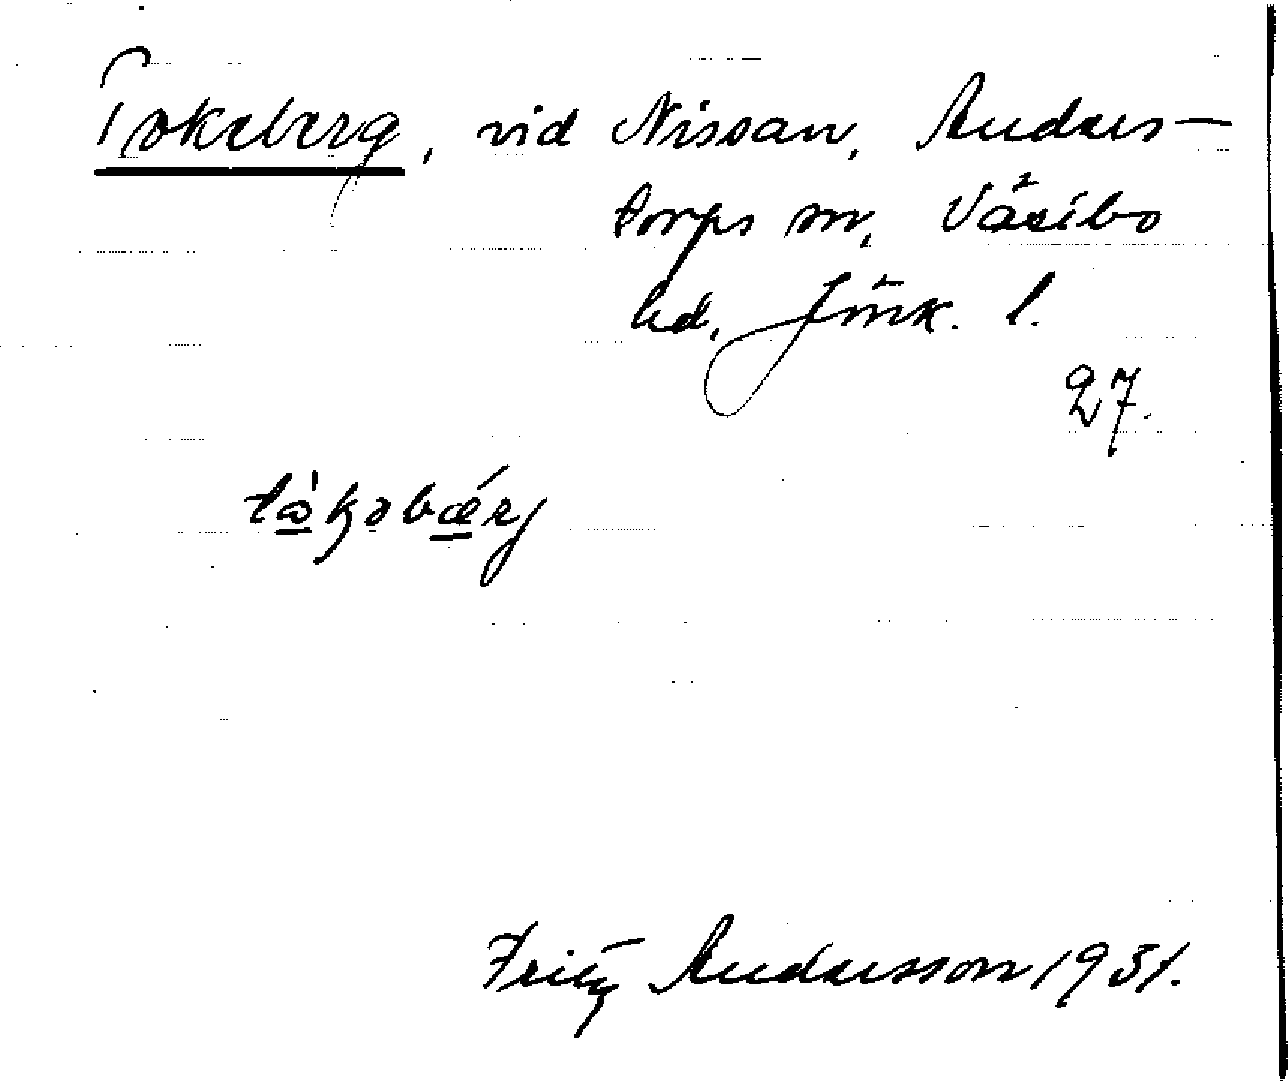 Tokeberg, vid Nissan, Anders-
torps sn, Västbo
hd, Jönk. l.
27.
tòkəbærj
Fritz Andersson 1931.